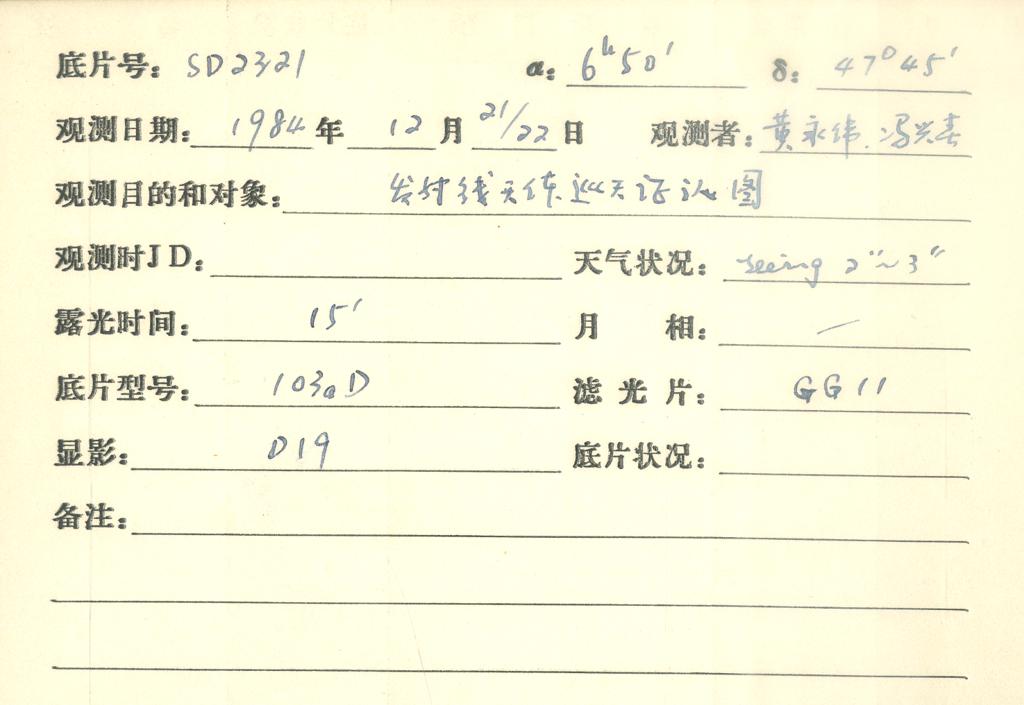 底片号: SD2321 α: 6ʰ50′ δ: 47°45′
观测日期: 1984年 12月 21/22日 观测者: 黄永纬.冯兴春
观测目的和对象: 发射线天体巡天证认图
观测时JD: 天气状况: seeing 2″~3″
露光时间: 15′ 月 相: —
底片型号: 103aD 滤光片: GG11
显影: D19 底片状况:
备注: